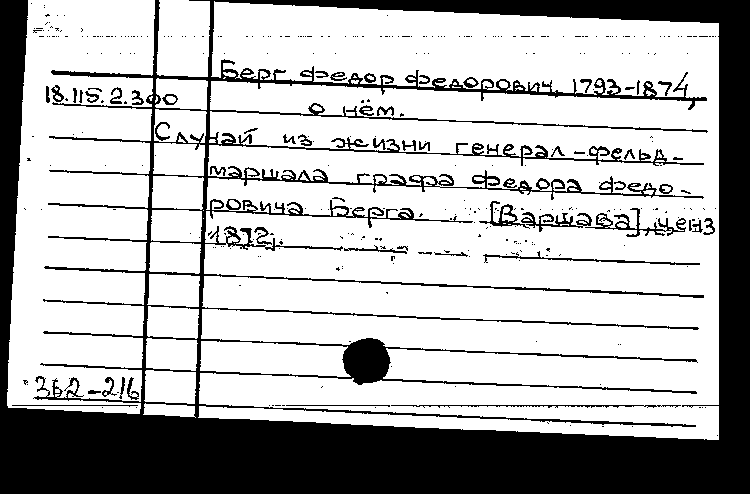 Берг, Федор Федорович, 1793-1874,
18.115.2.300
о нём.
Случай из жизни генерал-фельд-
маршала графа Федора Федо-
ровича Берга. [Варшава], ценз
1872.
362-216